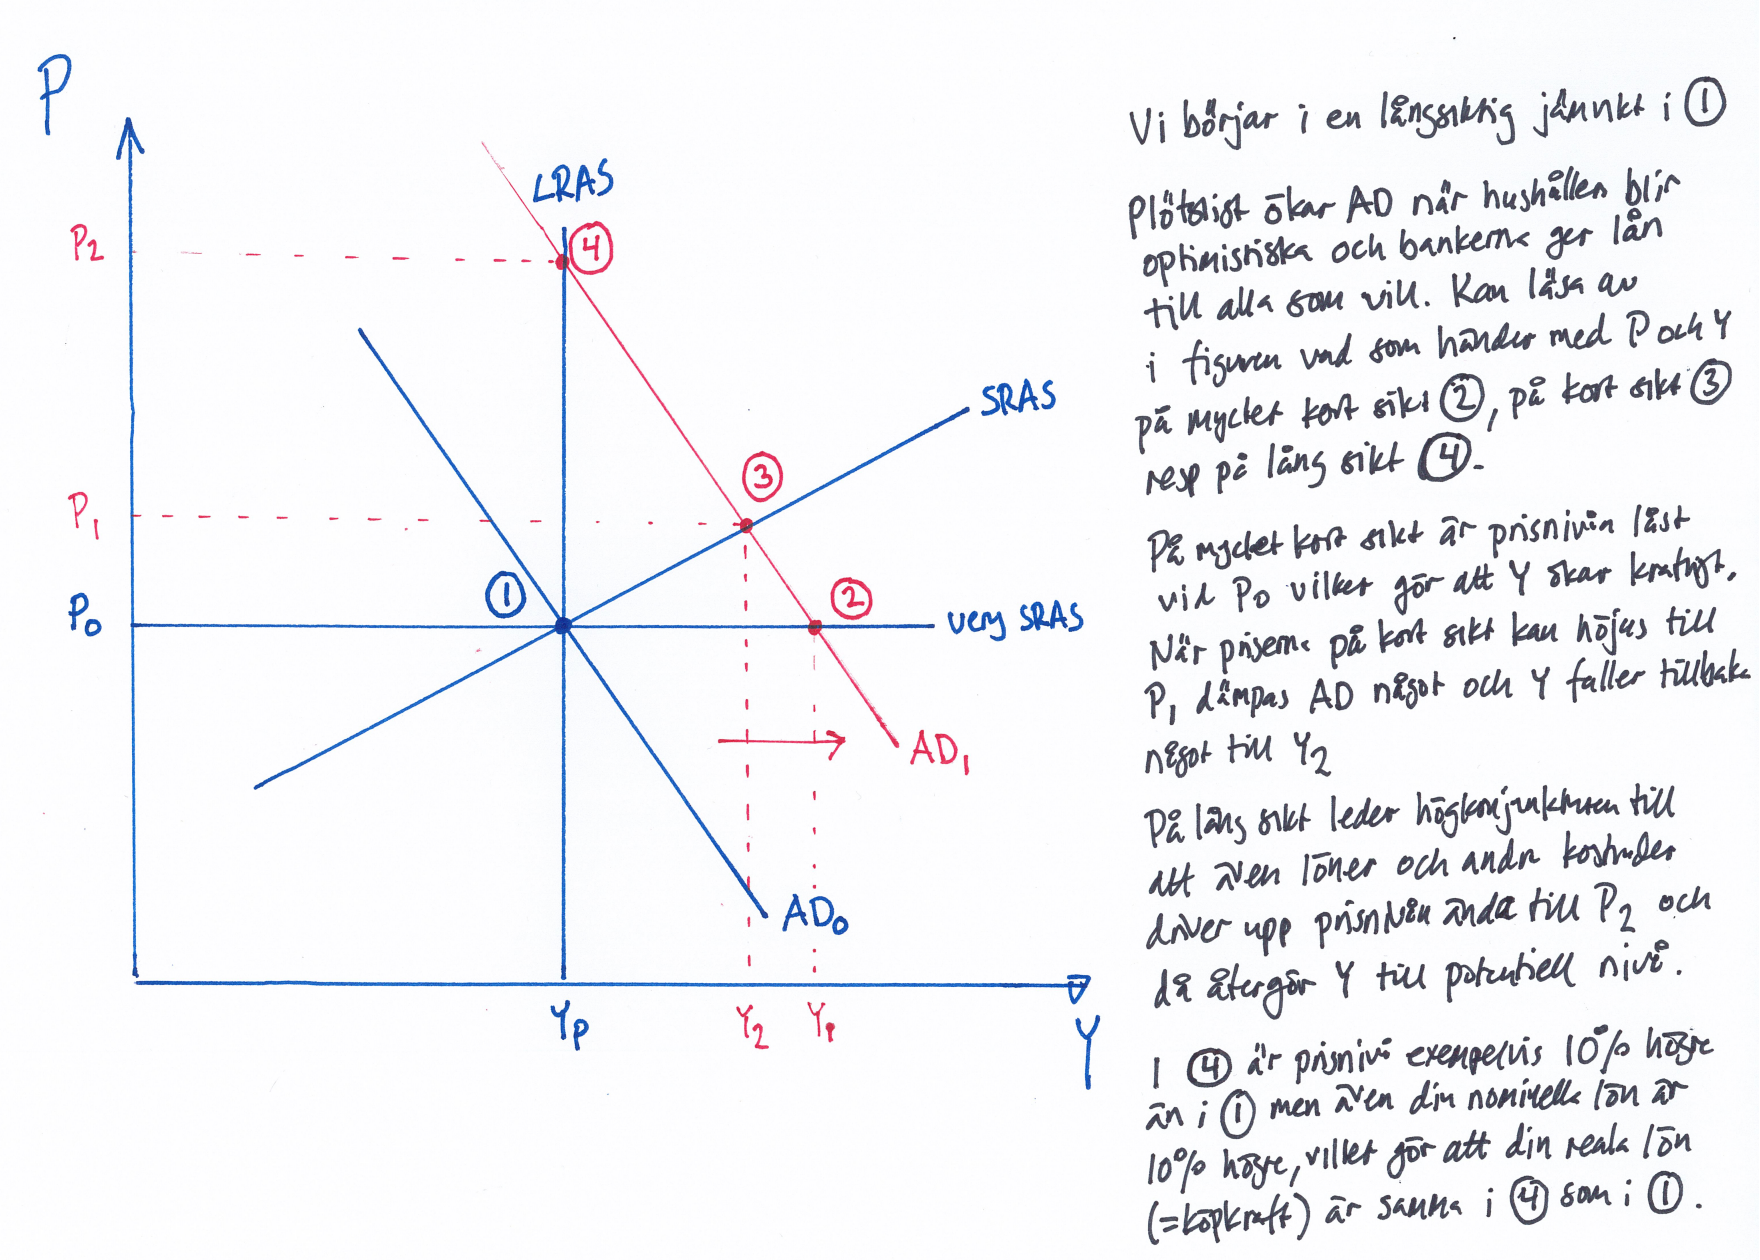 P
LRAS
P₂
④
SRAS
③
P₁
①
②
P₀
very SRAS
AD₁
AD₀
Yp
Y₂
Y₁
Y
Vi börjar i en långsiktig jämvikt i ①
Plötsligt ökar AD när hushållen blir
optimistiska och bankerna ger lån
till alla som vill. Kan läsa av
i figuren vad som händer med P och Y
på mycket kort sikt ②, på kort sikt ③
resp på lång sikt ④.
På mycket kort sikt är prisnivån låst
vid P₀ vilket gör att Y ökar kraftigt.
När priserna på kort sikt kan höjas till
P₁ dämpas AD något och Y faller tillbaka
något till Y₂
På lång sikt leder högkonjunkturen till
att även löner och andra kostnader
driver upp prisnivån ända till P₂ och
då återgår Y till potentiell nivå.
I ④ är prisnivå exempelvis 10% högre
än i ① men även din nominella lön är
10% högre, vilket gör att din reala lön
(=köpkraft) är samma i ④ som i ①.